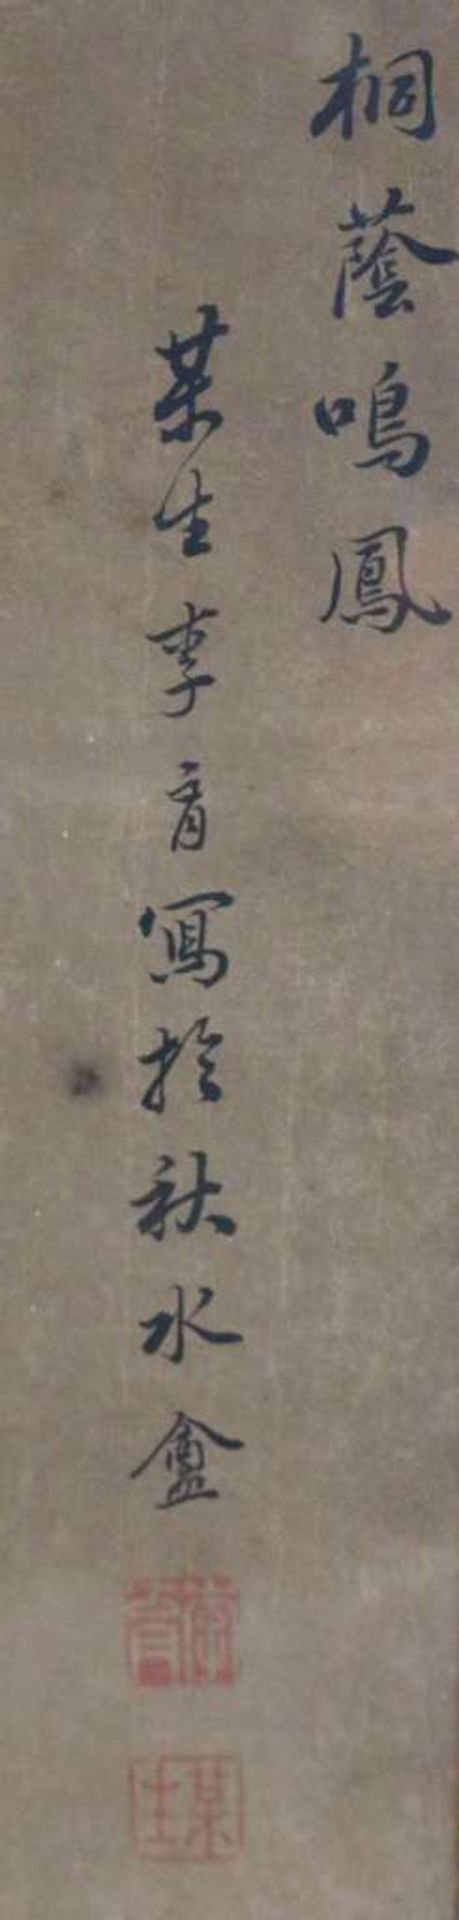 桐蔭鳴鳳
某生李育寫於秋水盦
某生